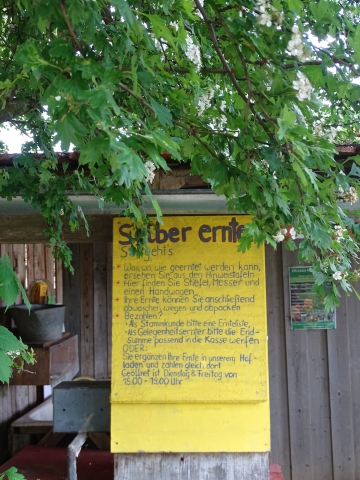 Selber ernten
So geht's
• Was, wo, wie geerntet werden kann,
ersehen Sie aus den Hinweistafeln
• Hier finden Sie Stiefel, Messer und
einen Handwagen
• Ihre Ernte können Sie anschließend
abwaschen, wiegen und abpacken
• Bezahlen?
- Als Stammkunde bitte eine Ernteliste,
- Als Gelegenheitsernter bitte die End-
Summe passend in die Kasse werfen
ODER:
Sie ergänzen Ihre Ernte in unserem Hof-
laden und zahlen gleich dort
Geöffnet ist Dienstag & Freitag von
15:00 - 18:00 Uhr